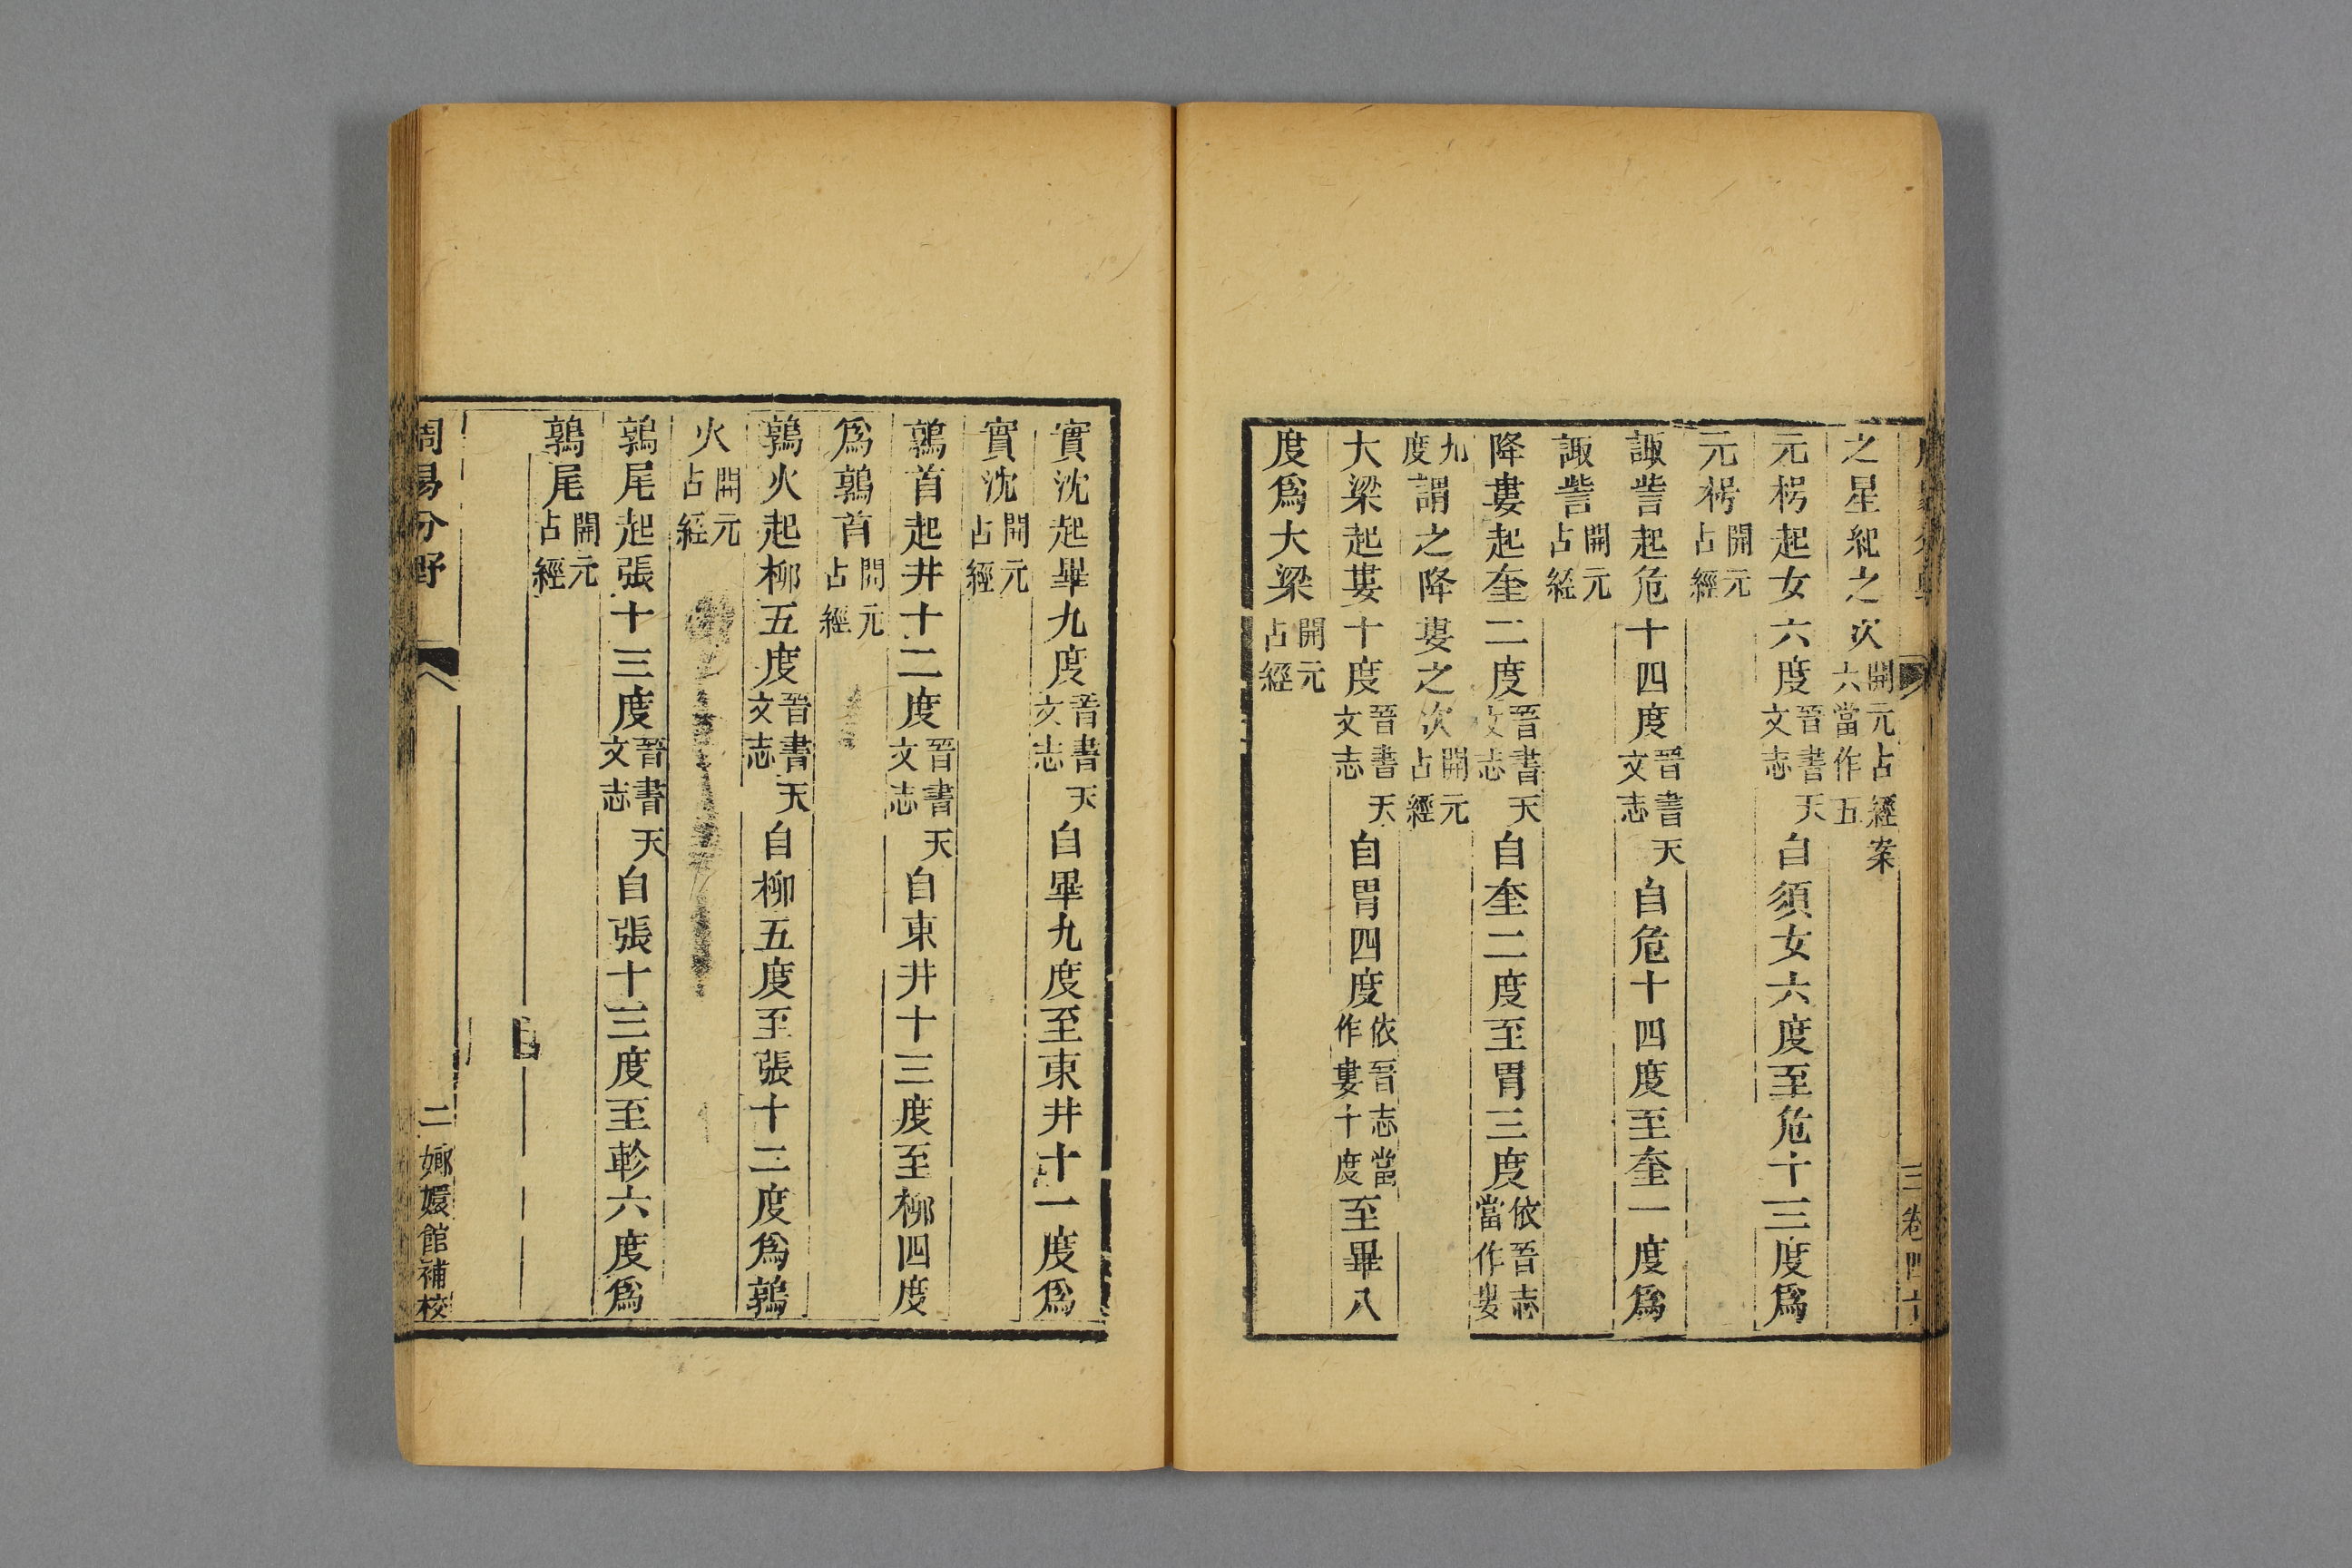 三 卷四十
之星紀之次開元占經案六當作五
元枵起女六度晉書天文志自須女六度至危十三度爲
元枵開元占經
諏訾起危十四度晉書天文志自危十四度至奎一度爲
諏訾開元占經
降婁起奎二度晉書天文志自奎二度至胃三度依晉志當作婁
九度謂之降婁之次開元占經
大梁起婁十度晉書天文志自胃四度依晉志當作婁十度至畢八
度爲大梁開元占經
實沈起畢九度晉書天文志自畢九度至東井十一度爲
實沈開元占經
鶉首起井十二度晉書天文志自東井十三度至柳四度
爲鶉首開元占經
鶉火起柳五度晉書天文志自柳五度至張十二度爲鶉
火開元占經
鶉尾起張十三度晉書天文志自張十三度至軫六度爲
鶉尾開元占經
周易分野 二 嫏嬛館補校